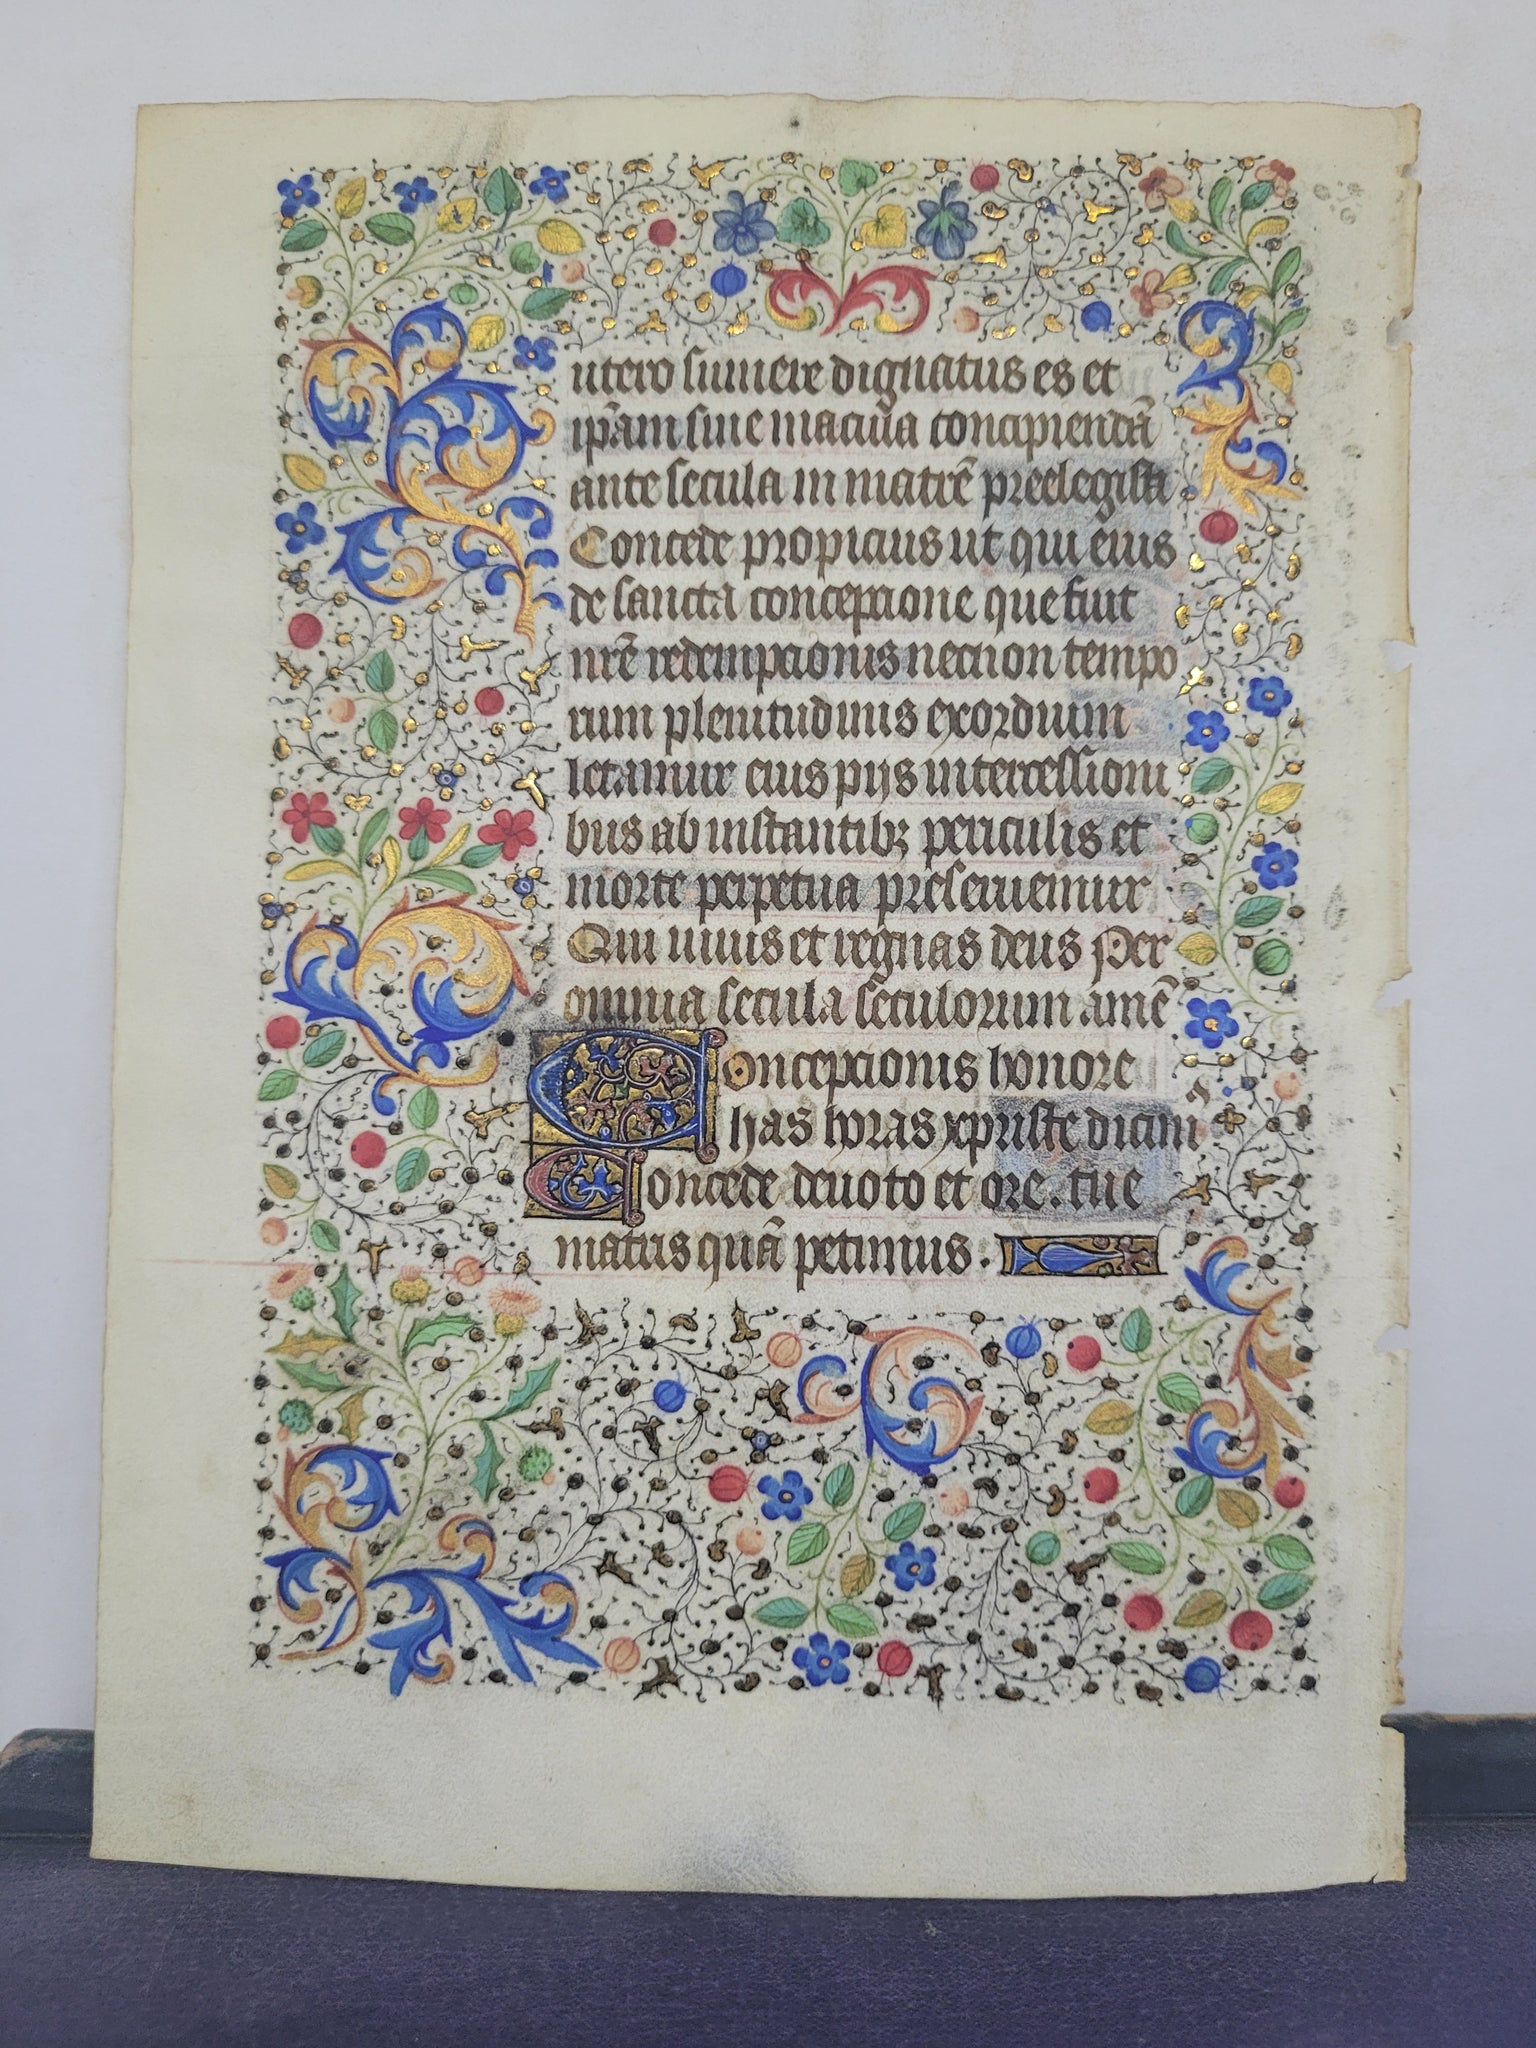 utero sumere dignatus es et
ip̄am sine macula concipiendā
ante secula in matrē preelegisti
Concede propicius ut qui eius
de sancta concepcione que fuit
nrē redempcionis necnon tempo
rum plenitudinis exordium
letamur eius pijs intercessioni
bus ab instantibꝫ periculis et
morte perpetua preseruemur
Qui uiuis et regnas deus Per
omnia secula seculorum amē
Concepcionis honore
has horas xpriste dicim̄
Concede deuoto et ore. tue
matris quā petimus.